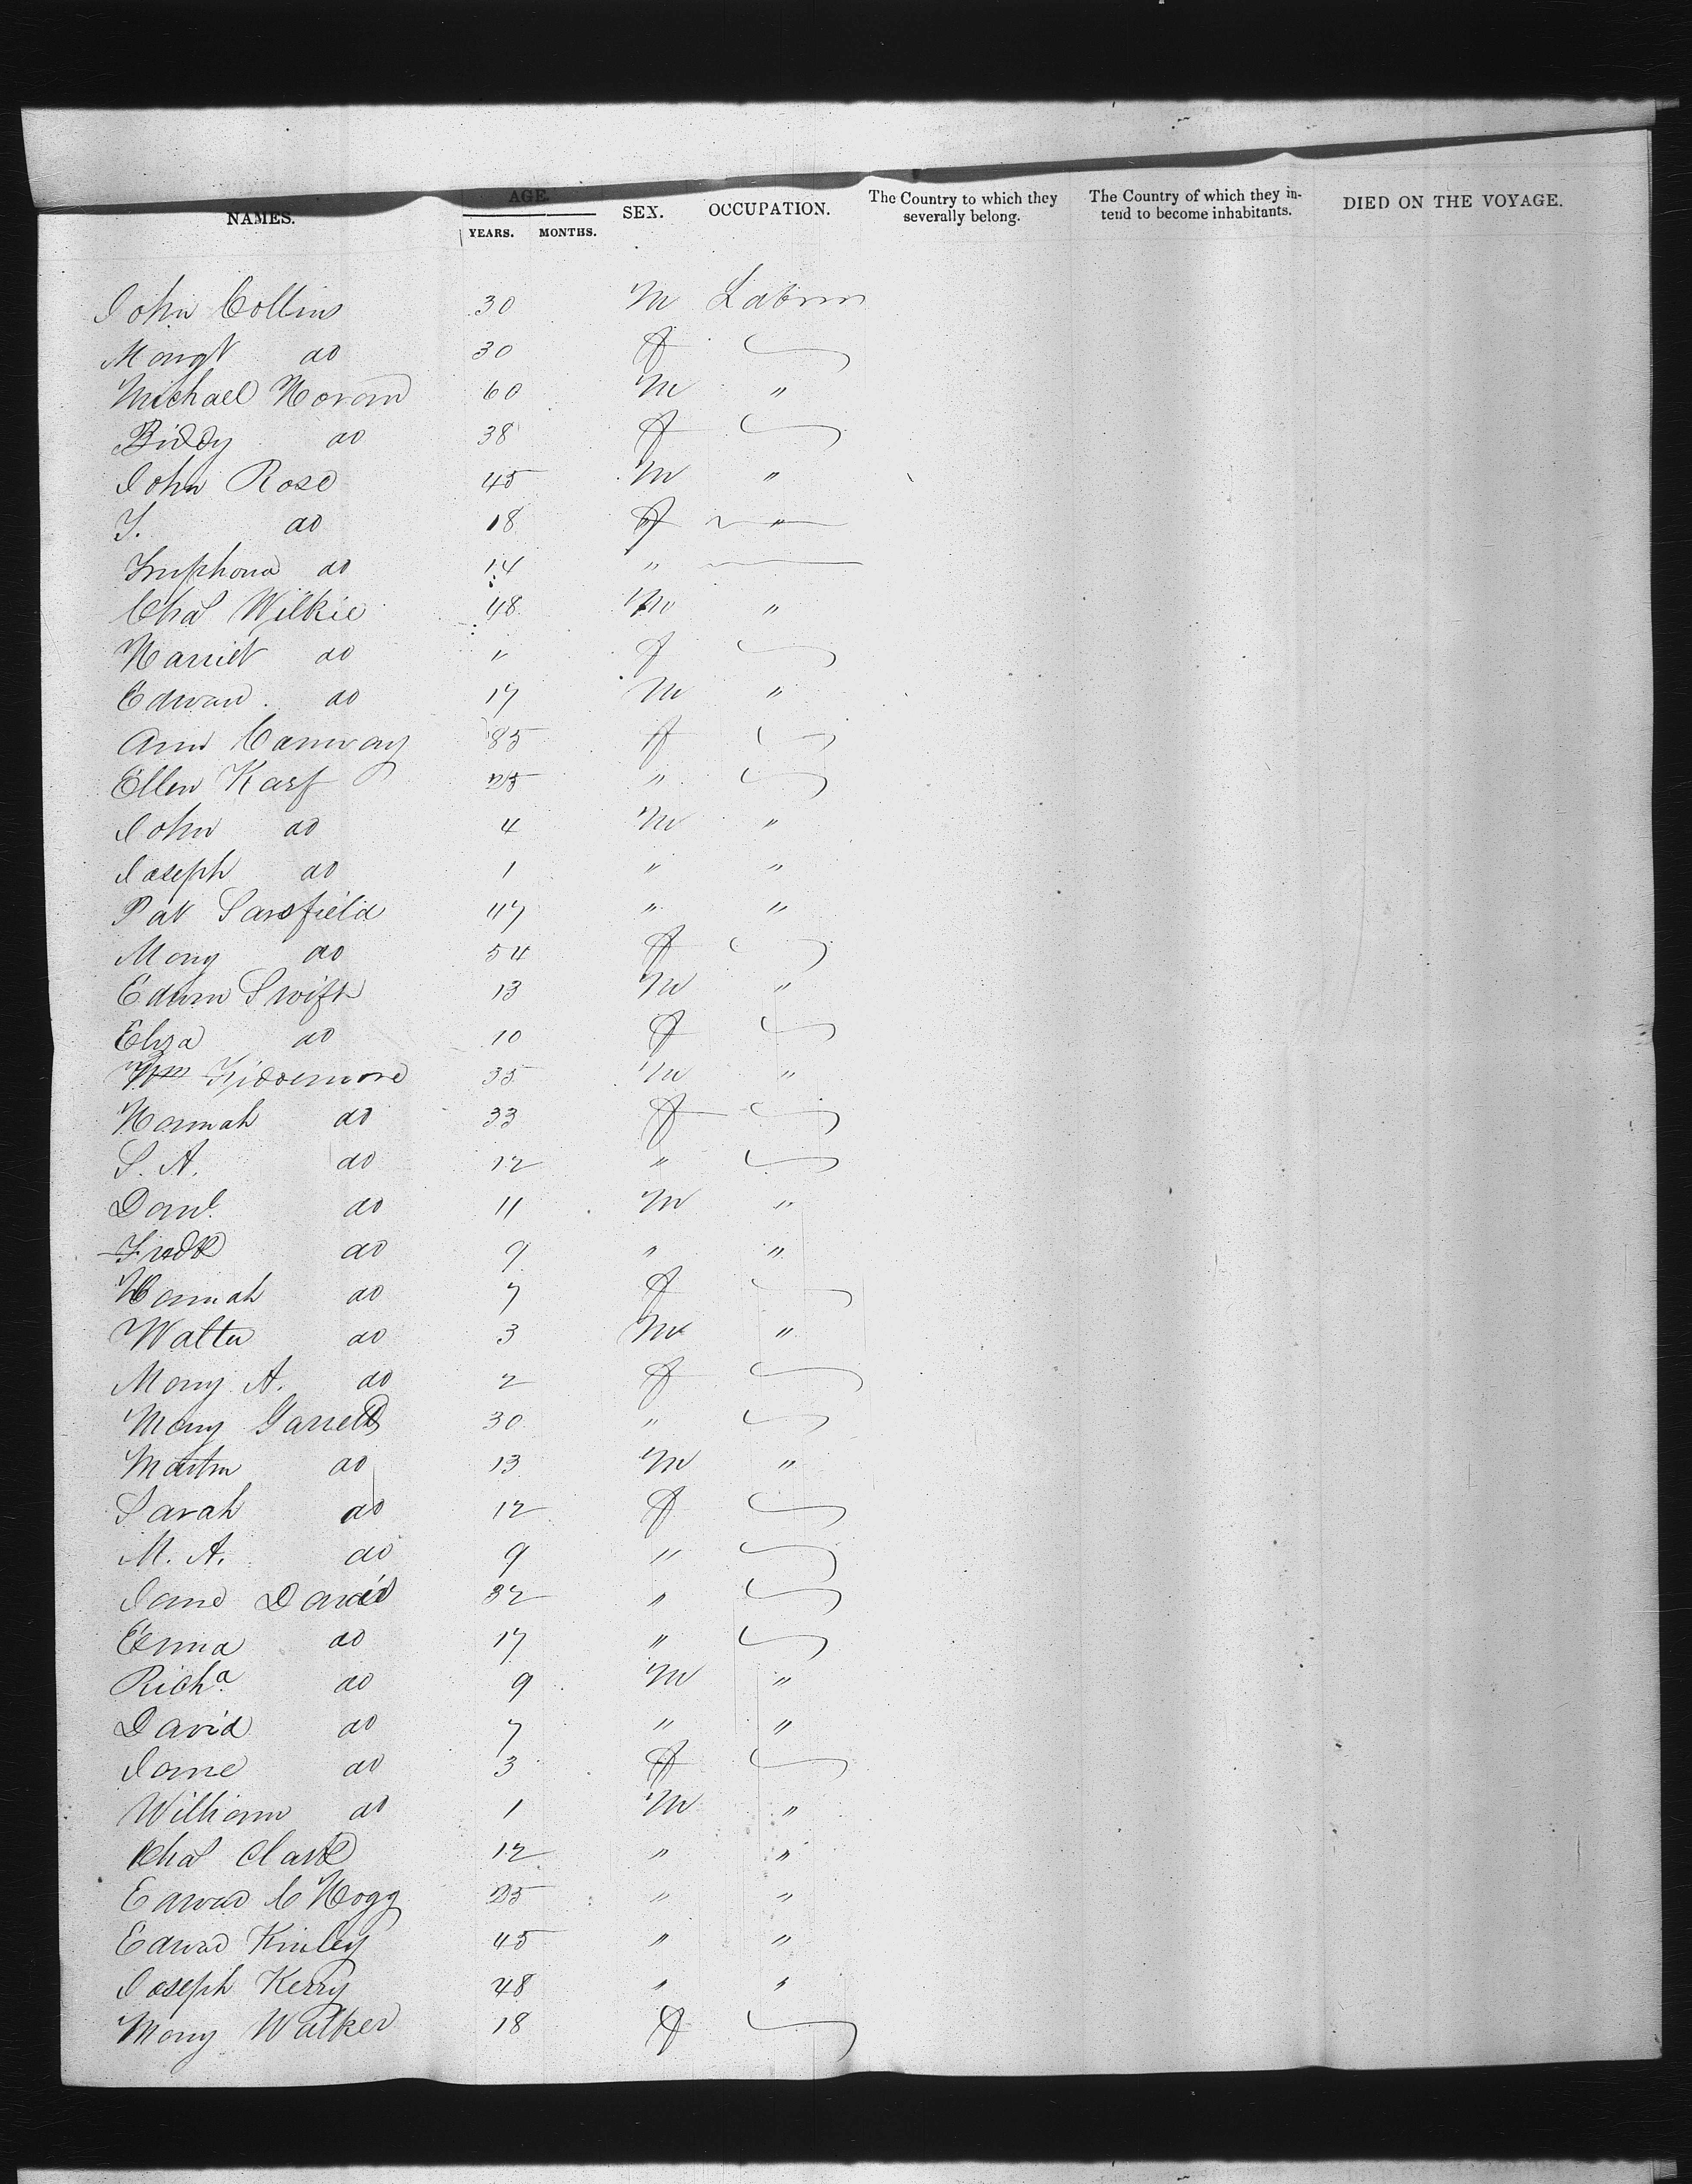 NAMES. AGE. YEARS. MONTHS. SEX. OCCUPATION. The Country to which they severally belong. The Country of which they intend to become inhabitants. DIED ON THE VOYAGE.
John Collins 30 M Labrer
Margt do 30 f
Michael Horan 60 M "
Biddy do 38 f
John Rose 45 M "
T. do 18 f "
do 14 "
Chas Wilkie 48 M "
Harriet do " f
Edward do 17 M "
Ann Canway 35 f
Ellen Karf 25 "
John do 4 M "
Joseph do 1 " "
Pat Sarsfield 47 " "
Mary do 54 f
Edwin Swift 13 M "
Eliza do 10 f
Wm 35 M "
Hannah do 33 f
S. A. do 12 "
Danl do 11 M "
Fredk do 9 " "
Hannah do 7 f
Walter do 3 M "
Mary A. do 2 f
Mary Garrett 30 "
Martin do 13 M "
Sarah do 12 f
M. A. do 9 "
Jane David 32 "
Emma do 17 "
Richd do 9 M "
David do 7 " "
Jane do 3 f
William do 1 M "
Chas Clark 12 " "
Edward C Hogg 25 " "
Edwad Kinley 45 " "
Joseph Kerry 48 " "
Mary Walker 18 f